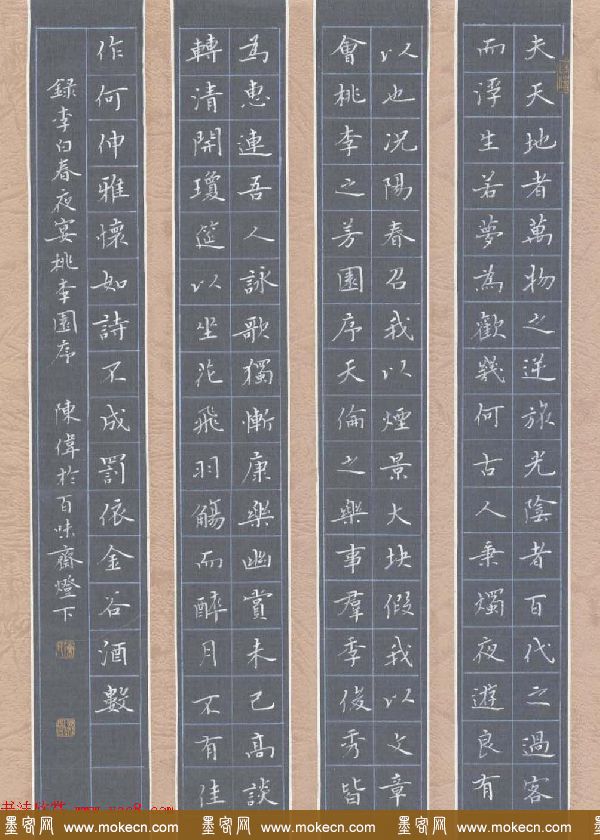 夫天地者萬物之逆旅光陰者百代之過客
而浮生若夢為歡幾何古人秉燭夜遊良有
以也況陽春召我以煙景大块假我以文章
會桃李之芳園序天倫之樂事羣季俊秀皆
為惠連吾人詠歌獨慚康樂幽賞未已高談
轉清開瓊筵以坐花飛羽觴而醉月不有佳
作何伸雅懷如詩不成罰依金谷酒數
録李白春夜宴桃李園序 陳偉於百味齋燈下
墨客网 www.mokecn.com 墨客网 www.mokecn.com 墨客网 www.mokecn.com